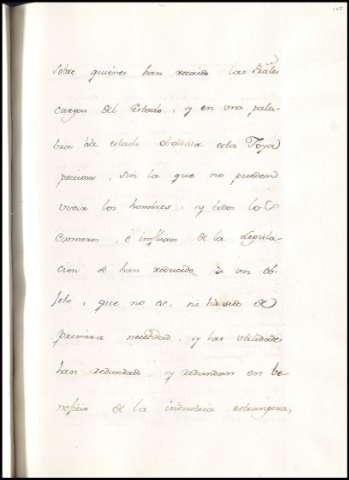 sobre quienes han recaido las Rales
cargas del Estado, y en una pala-
bra de estado esta Joya
preciosa, sin la que no pueden
vivir los hombres, y todo lo
Comercio, è influxo de la Legisla-
cion se han reducido à un ob-
jeto, que no es, ni ha sido de
primera necesidad, y las utilidades
han redundado, y redundan en be-
neficio de la industria extrangera,